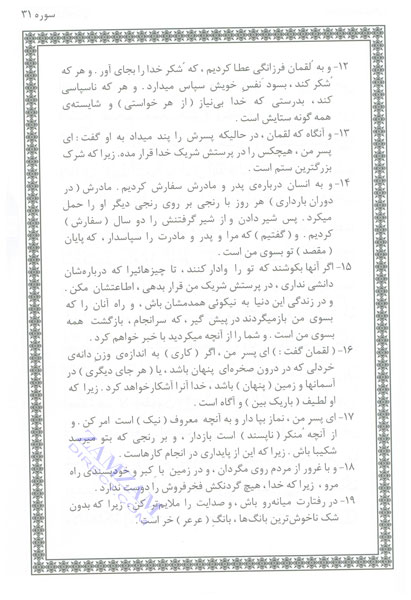 سوره ۳۱
۱۲- و به لُقمان فرزانگی عطا کردیم ، که ُشکر خدا را بجای آور . و هر که
ُشکر کند ، بسود َنفس خویش سپاس میدارد . و هر که ناسپاسی
کند ، بدرستی که خدا بی‌نیاز ( از هر خواستی ) و شایسته‌ی
همه گونه ستایش است .
۱۳- و آنگاه که لقمان ، در حالیکه پسرش را پند میداد به او گفت : ای
پسر من ، هیچکس را در پرستش شریک خدا قرار مده. زیرا که شرک
بزرگترین ستم است .
۱۴- و به انسان درباره‌ی پدر و مادرش سفارش کردیم . مادرش ( در
دوران بارداری ) هر روز با رنجی بر روی رنجی دیگر او را حمل
میکرد . پس شیر دادن و از شیر گرفتنش را دو سال ( سفارش )
کردیم . و ( گفتیم ) که مرا و پدر و مادرت را سپاسدار ، که پایان
( مقصد ) تو بسوی من است .
۱۵- اگر آنها بکوشند که تو را وادار کنند ، تا چیزهائیرا که درباره‌شان
دانشی نداری ، در پرستش شریک من قرار بدهی ، اطاعتشان مکن .
و در زندگی این دنیا به نیکوئی همدمشان باش ، و راه آنان را که
بسوی من بازمیگردند در پیش گیر ، که سرانجام ، بازگشت همه
بسوی من است . و شما را از آنچه میکردید با خبر خواهم کرد .
۱۶- ( لقمان گفت : ) ای پسر من ، اگر ( کاری ) به اندازه‌ی وزن دانه‌ی
خردلی که در درون صخره‌ای پنهان باشد ، یا ( هر جای دیگری ) در
آسمانها و زمین ( پنهان ) باشد ، خدا آنرا آشکارخواهد کرد . زیرا که
او لطیف ( باریک بین ) و آگاه است .
۱۷- ای پسر من ، نماز بپا دار و به آنچه معروف ( نیک ) است امر کن . و
از آنچه مُنکر ( ناپسند ) است بازدار ، و بر رنجی که بتو میرسد
شکیبا باش . زیرا که این از پایداری در انجام کارهاست .
۱۸- و با غرور از مردم روی مگردان ، و در زمین با کبر و خودپسندی راه
مرو ، زیرا که خدا ، هیچ گردنکش فخرفروش را دوست ندارد .
۱۹- در رفتارت میانه‌رو باش ، و صدایت را ملایم‌تر کن ، زیرا که بدون
شک ناخوش‌ترین بانگ‌ها ، بانگِ ( عرعر ) خر است .